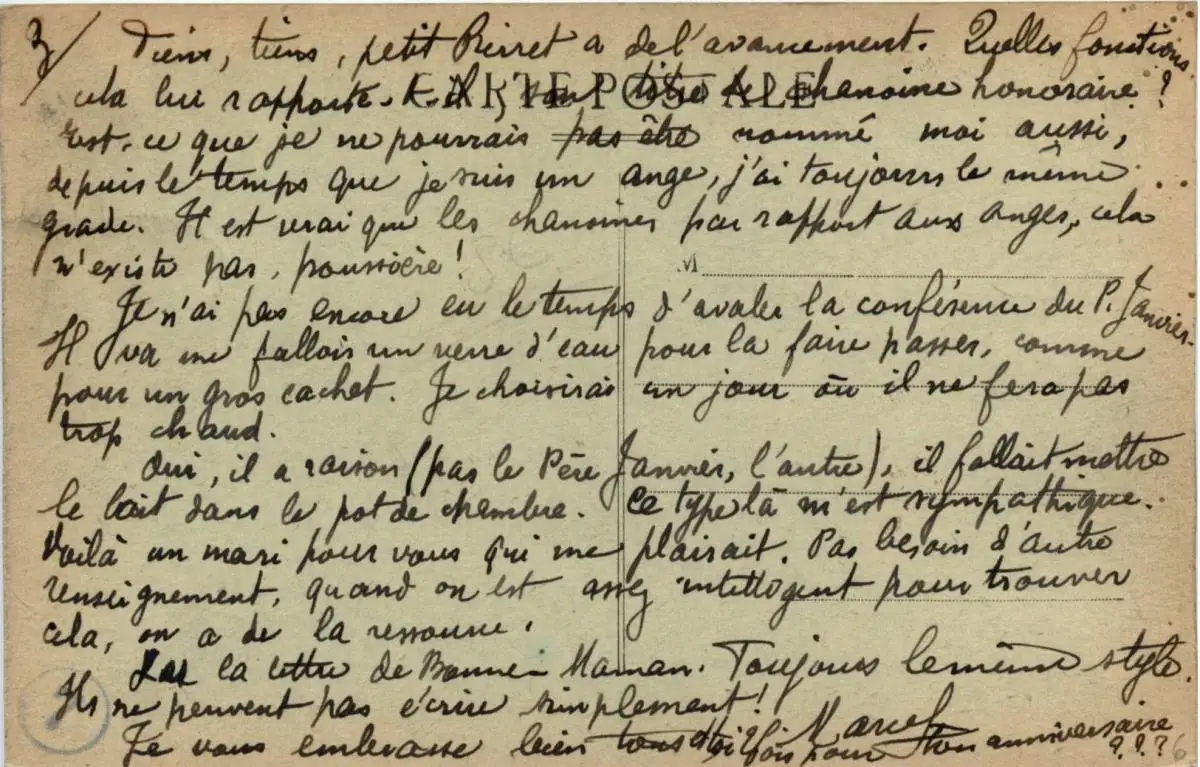 3/ Tiens, tiens, petit Pierret a de l'avancement. Quelles fonctions
cela lui rapporte-t-il, son titre de chanoine honoraire ?
CARTE POSTALE
Est-ce que je ne pourrais pas être nommé moi aussi,
depuis le temps que je suis un ange, j'ai toujours le même
grade. Il est vrai que les chanoines par rapport aux anges, cela
n'existe pas, poussière !
M
Je n'ai pas encore eu le temps d'avaler la conférence du P. Janvier-
Il va me falloir un verre d'eau pour la faire passer, comme
pour un gros cachet. Je choisirai un jour où il ne fera pas
trop chaud.
Oui, il a raison (pas le Père Janvier, l'autre), il fallait mettre
le lait dans le pot de chambre. Ce type là m'est sympathique.
Voilà un mari pour vous qui me plairait. Pas besoin d'autre
renseignement, quand on est assez intelligent pour trouver
cela, on a de la ressource.
la lettre de Bonne-Maman. Toujours le même style.
Ils ne peuvent pas écrire simplement !
Je vous embrasse bien tous Marcel
fois pour ton anniversaire
? ? ?